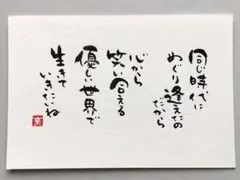 同じ時代に
めぐり逢えたの
だから
心から
笑い合える
優しい世界で
生きて
いきたいね